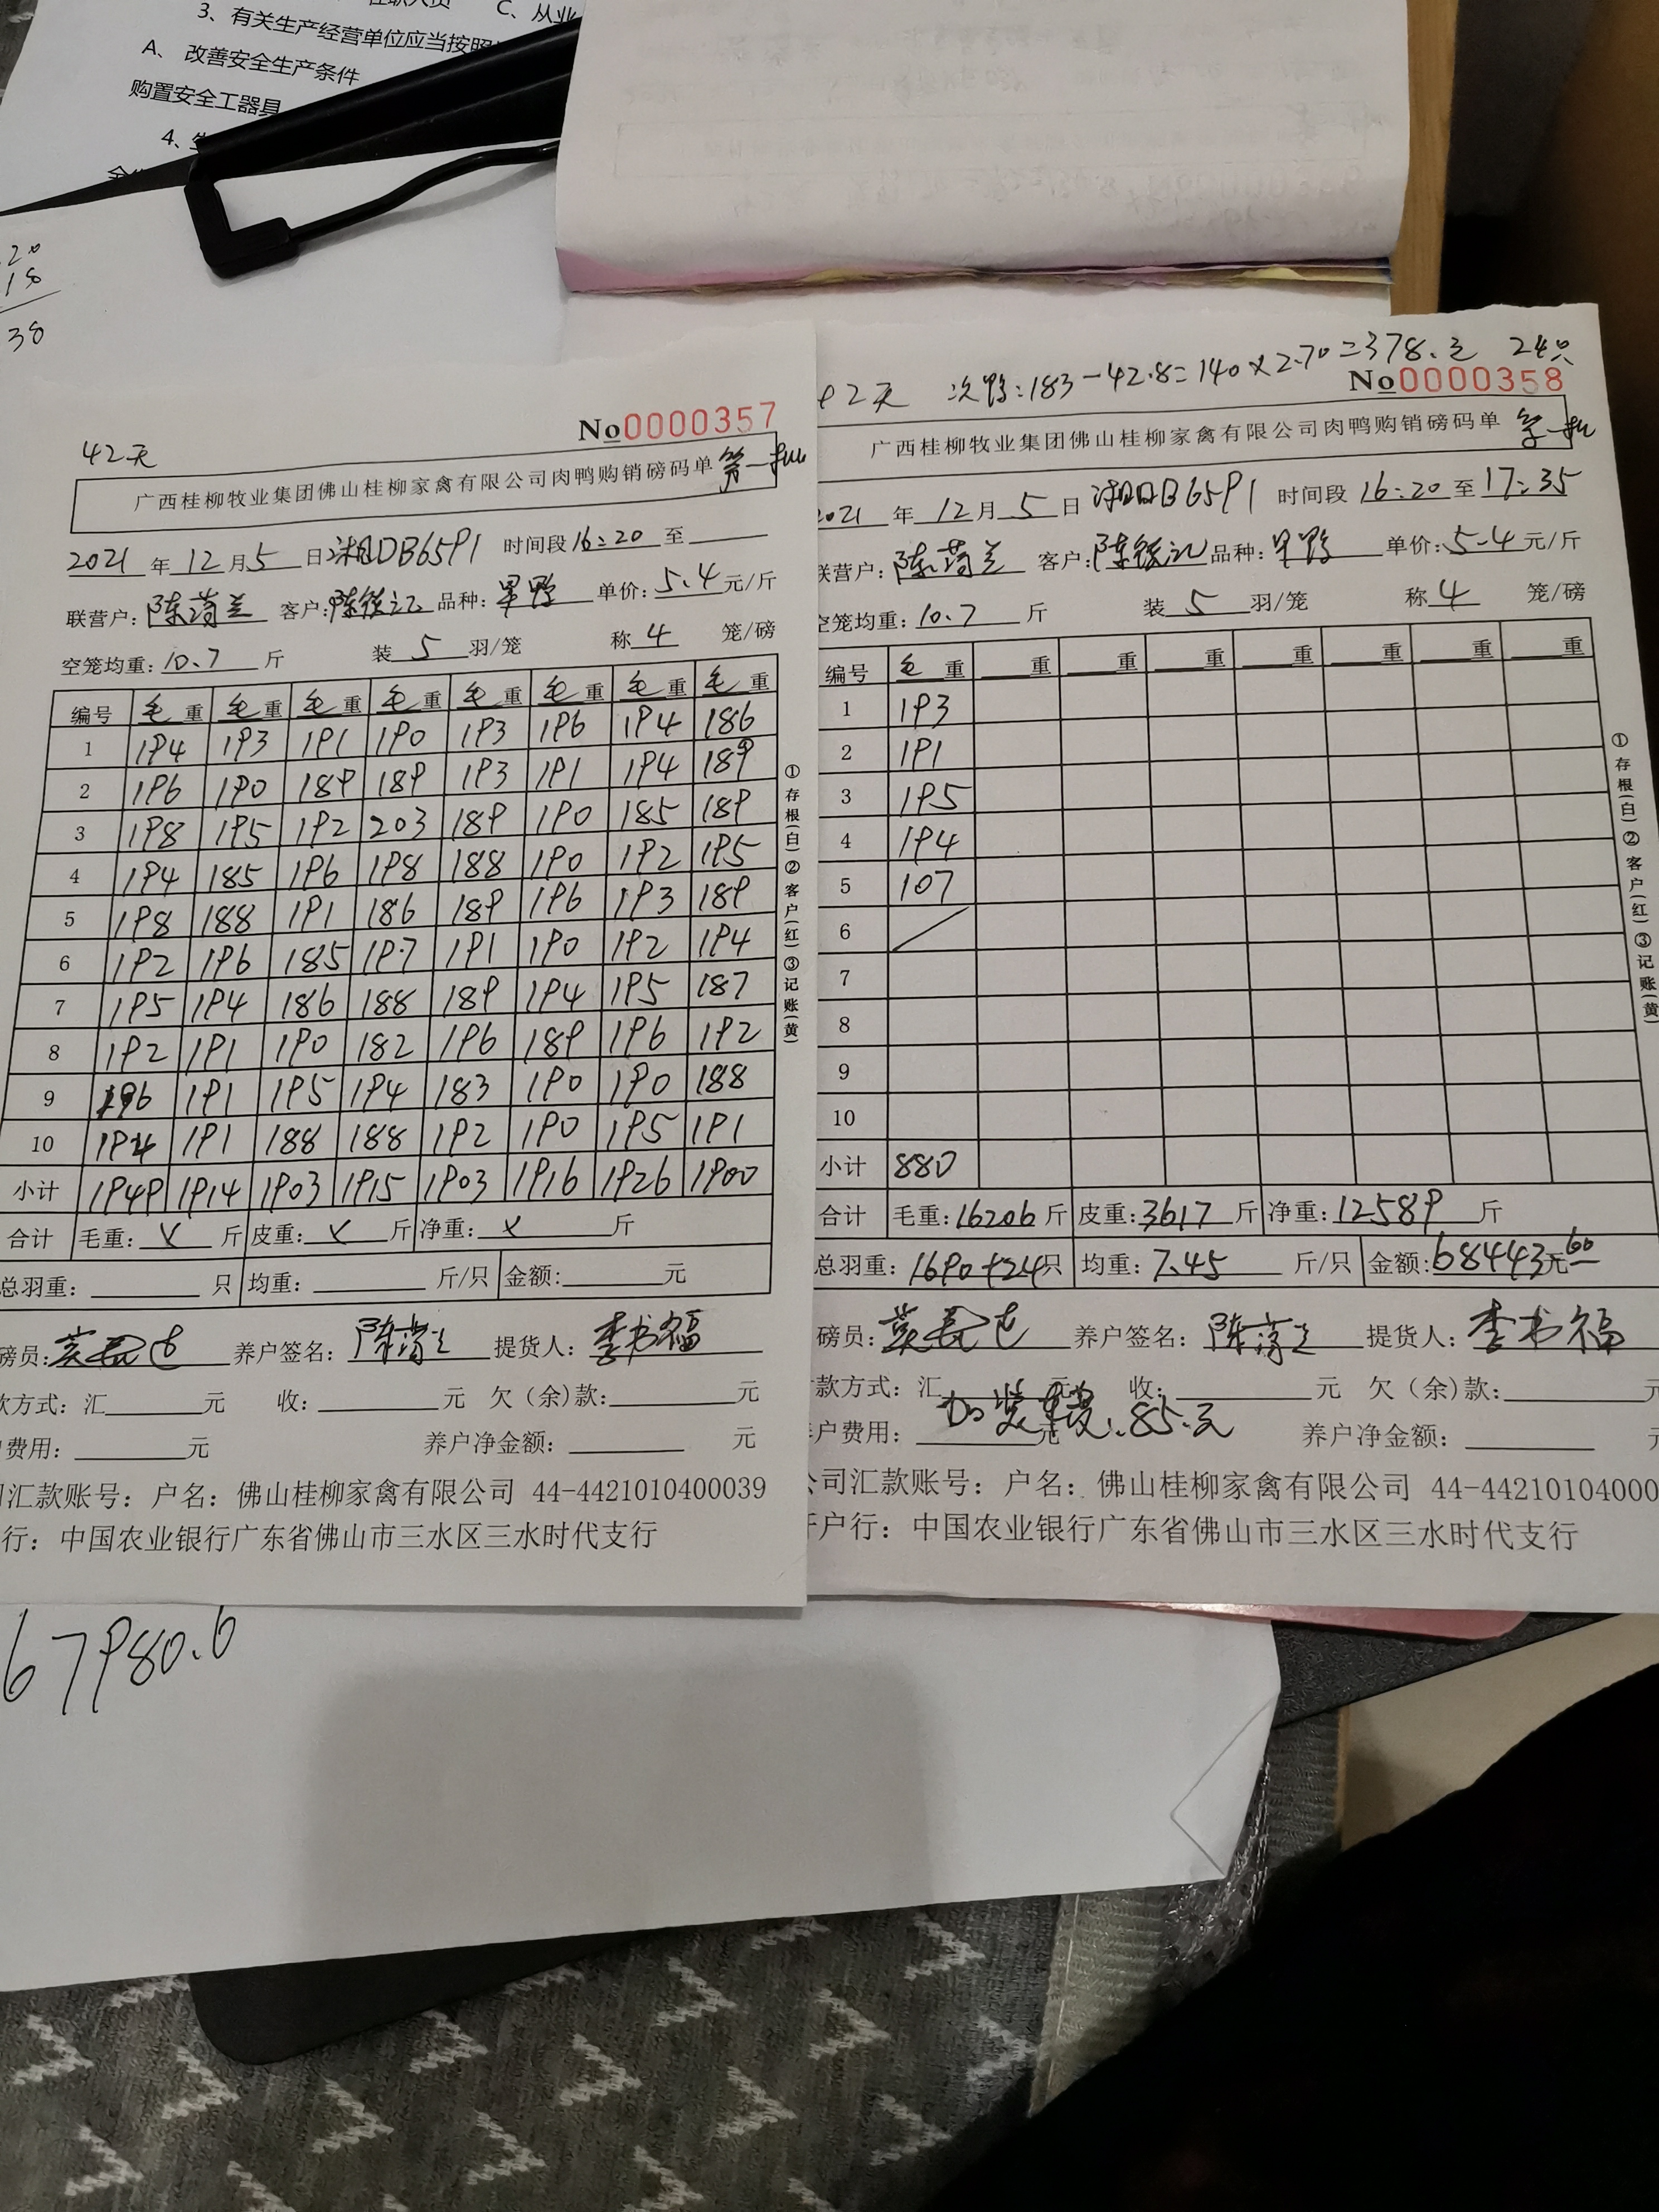 C、从业
3、有关生产经营单位应当按照
A、 改善安全生产条件
购置安全工器具
4、生
20
18
38
42天
No0000357
广西桂柳牧业集团佛山桂柳家禽有限公司肉鸭购销磅码单 第一批
2021 年 12 月 5 日 湘DB6591 时间段 16:20 至
联营户: 陈 兰 客户: 陈 记 品种: 旱鸭 单价: 5.4 元/斤
空笼均重: 10.7 斤 装 5 羽/笼 称 4 笼/磅
编号 毛重 毛重 毛重 毛重 毛重 毛重 毛重 毛重
1 194 193 191 190 193 196 194 186
2 196 190 189 189 193 191 194 189
3 198 195 192 203 189 190 185 189
4 194 185 196 198 188 190 192 195
5 198 188 191 186 189 196 193 189
6 192 196 185 197 191 190 192 194
7 195 194 186 188 189 194 195 187
8 192 191 190 182 196 189 196 192
9 196 191 195 194 183 190 190 188
10 194 191 188 188 192 190 195 191
小计 1949 1914 1903 1915 1903 1916 1926 1900
合计 毛重: X 斤 皮重: X 斤 净重: X 斤
总羽重: 只 均重: 斤/只 金额: 元
磅员: 养户签名: 陈 兰 提货人: 李书福
款方式: 汇 元 收: 元 欠(余)款: 元
户费用: 元 养户净金额: 元
司汇款账号: 户名: 佛山桂柳家禽有限公司 44-4421010400039
行: 中国农业银行广东省佛山市三水区三水时代支行
①存根(白)②客户(红)③记账(黄)
42天 次鸭:183-42.8=140×2.70=378.元 24只
No0000358
广西桂柳牧业集团佛山桂柳家禽有限公司肉鸭购销磅码单 第一批
2021 年 12 月 5 日 湘DB6591 时间段 16:20 至 17:35
联营户: 陈 兰 客户: 陈 记 品种: 旱鸭 单价: 5.4 元/斤
空笼均重: 10.7 斤 装 5 羽/笼 称 4 笼/磅
编号 毛重 重 重 重 重 重 重 重
1 193
2 191
3 195
4 194
5 107
6 /
7
8
9
10
小计 880
合计 毛重: 16206 斤 皮重: 3617 斤 净重: 12589 斤
总羽重: 1690+24只 均重: 7.45 斤/只 金额: 68443元60
磅员: 养户签名: 陈 兰 提货人: 李书福
款方式: 汇 元 收: 元 欠(余)款: 元
加装车费:85.元
户费用: 元 养户净金额: 元
公司汇款账号: 户名: 佛山桂柳家禽有限公司 44-44210104000
开户行: 中国农业银行广东省佛山市三水区三水时代支行
①存根(白)②客户(红)③记账(黄)
67980.6